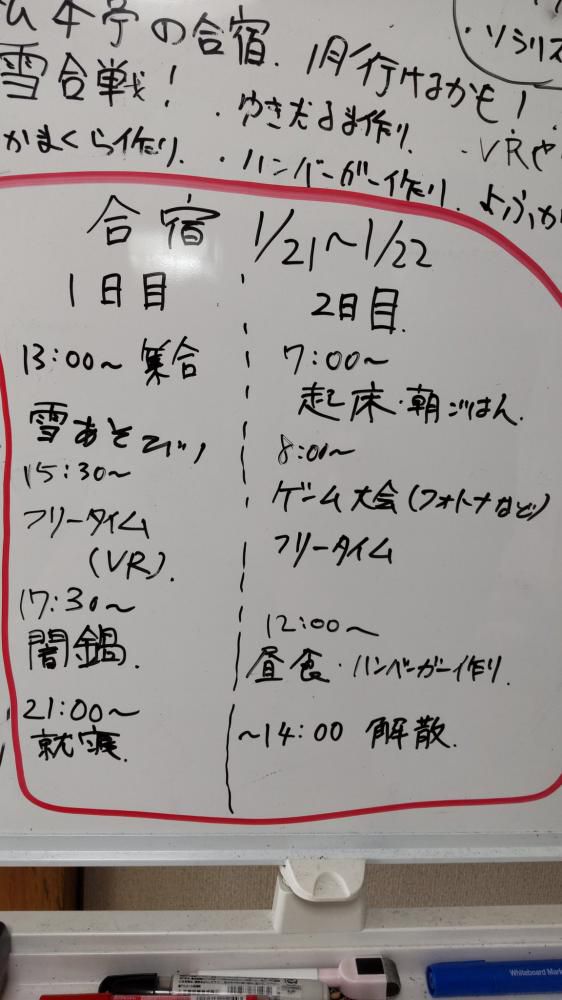 本亭の合宿. 1月行けるかも!
・ソラリス
雪合戦! ・ゆきだるま作り. ・VRや
かまくら作り. ・ハンバーガー作り. よふか
合宿 1/21～1/22
1日目
13:00～ 集合
雪あそび!!
15:30～
フリータイム
(VR).
17:30～
闇鍋.
21:00～
就寝.
2日目.
7:00～
起床・朝ごはん.
8:00～
ゲーム大会(フォトナなど)
フリータイム
12:00～
昼食・ハンバーガー作り.
～14:00 解散.
Whiteboard Mar